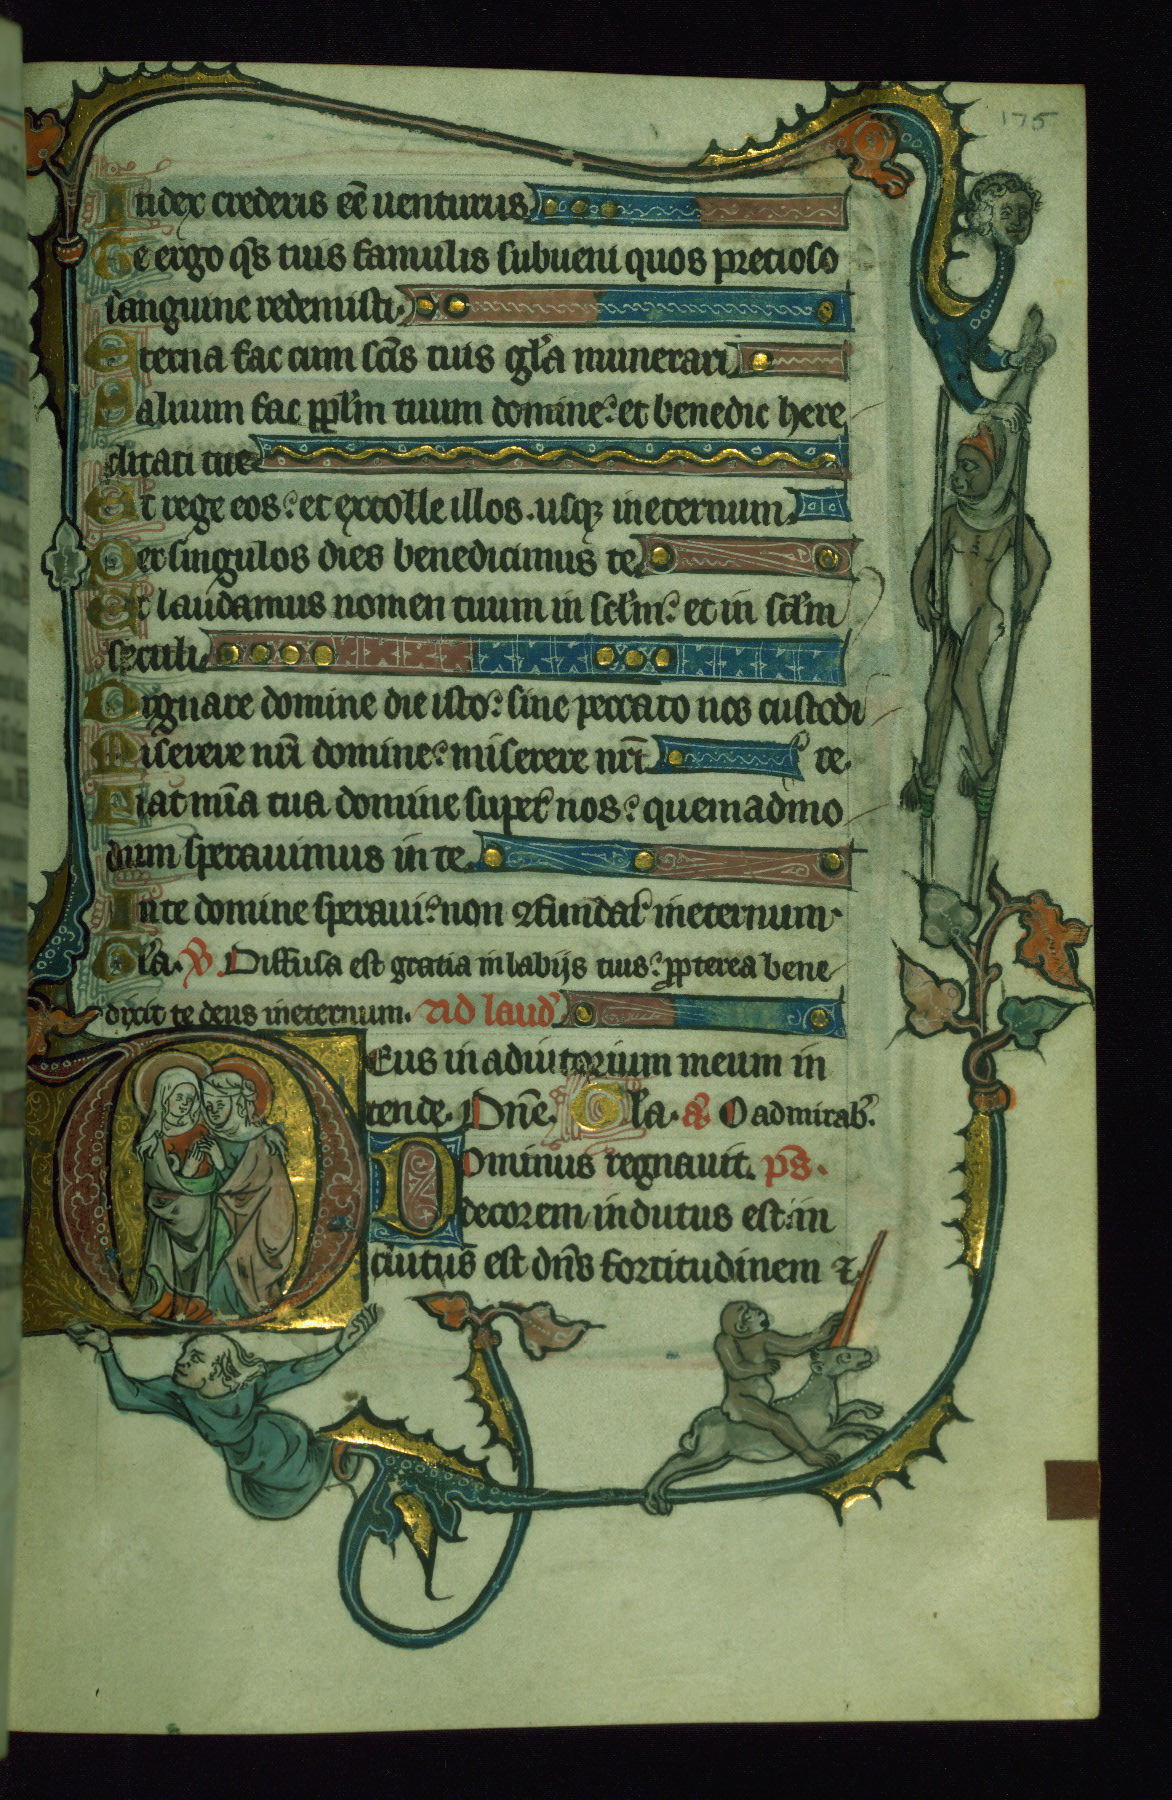 175
Iudex crederis eē uenturus
Te ergo q̄s tuis famulis subueni quos precioso
sanguine redemisti.
Eterna fac cum scīs tuis gľa munerari
Saluum fac ppľm tuum domine: et benedic here
ditati tue
Et rege eos: et extolle illos. usqȝ ineternum.
Per singulos dies benedicimus te
Et laudamus nomen tuum in scľm: et in scľm
seculi.
Dignare domine die isto: sine peccato nos custodi
Miserere nrī domine: miserere nrī re.
Fiat mīa tua domine super nos: quemadmo
dum sperauimus in te
In te domine speraui: non ꝯfundar ineternum.
Gľa. V. Diffusa est gratia in labijs tuis: ppterea bene
dixit te deus ineternum. Ad laud'
Deus in adiutorium meum in
tende. Dn̄e. Gľa. a᷈ O admirab'.
Dominus regnauit. p̄s.
decorem indutus est: in
dutus est dn̄s fortitudinem ⁊